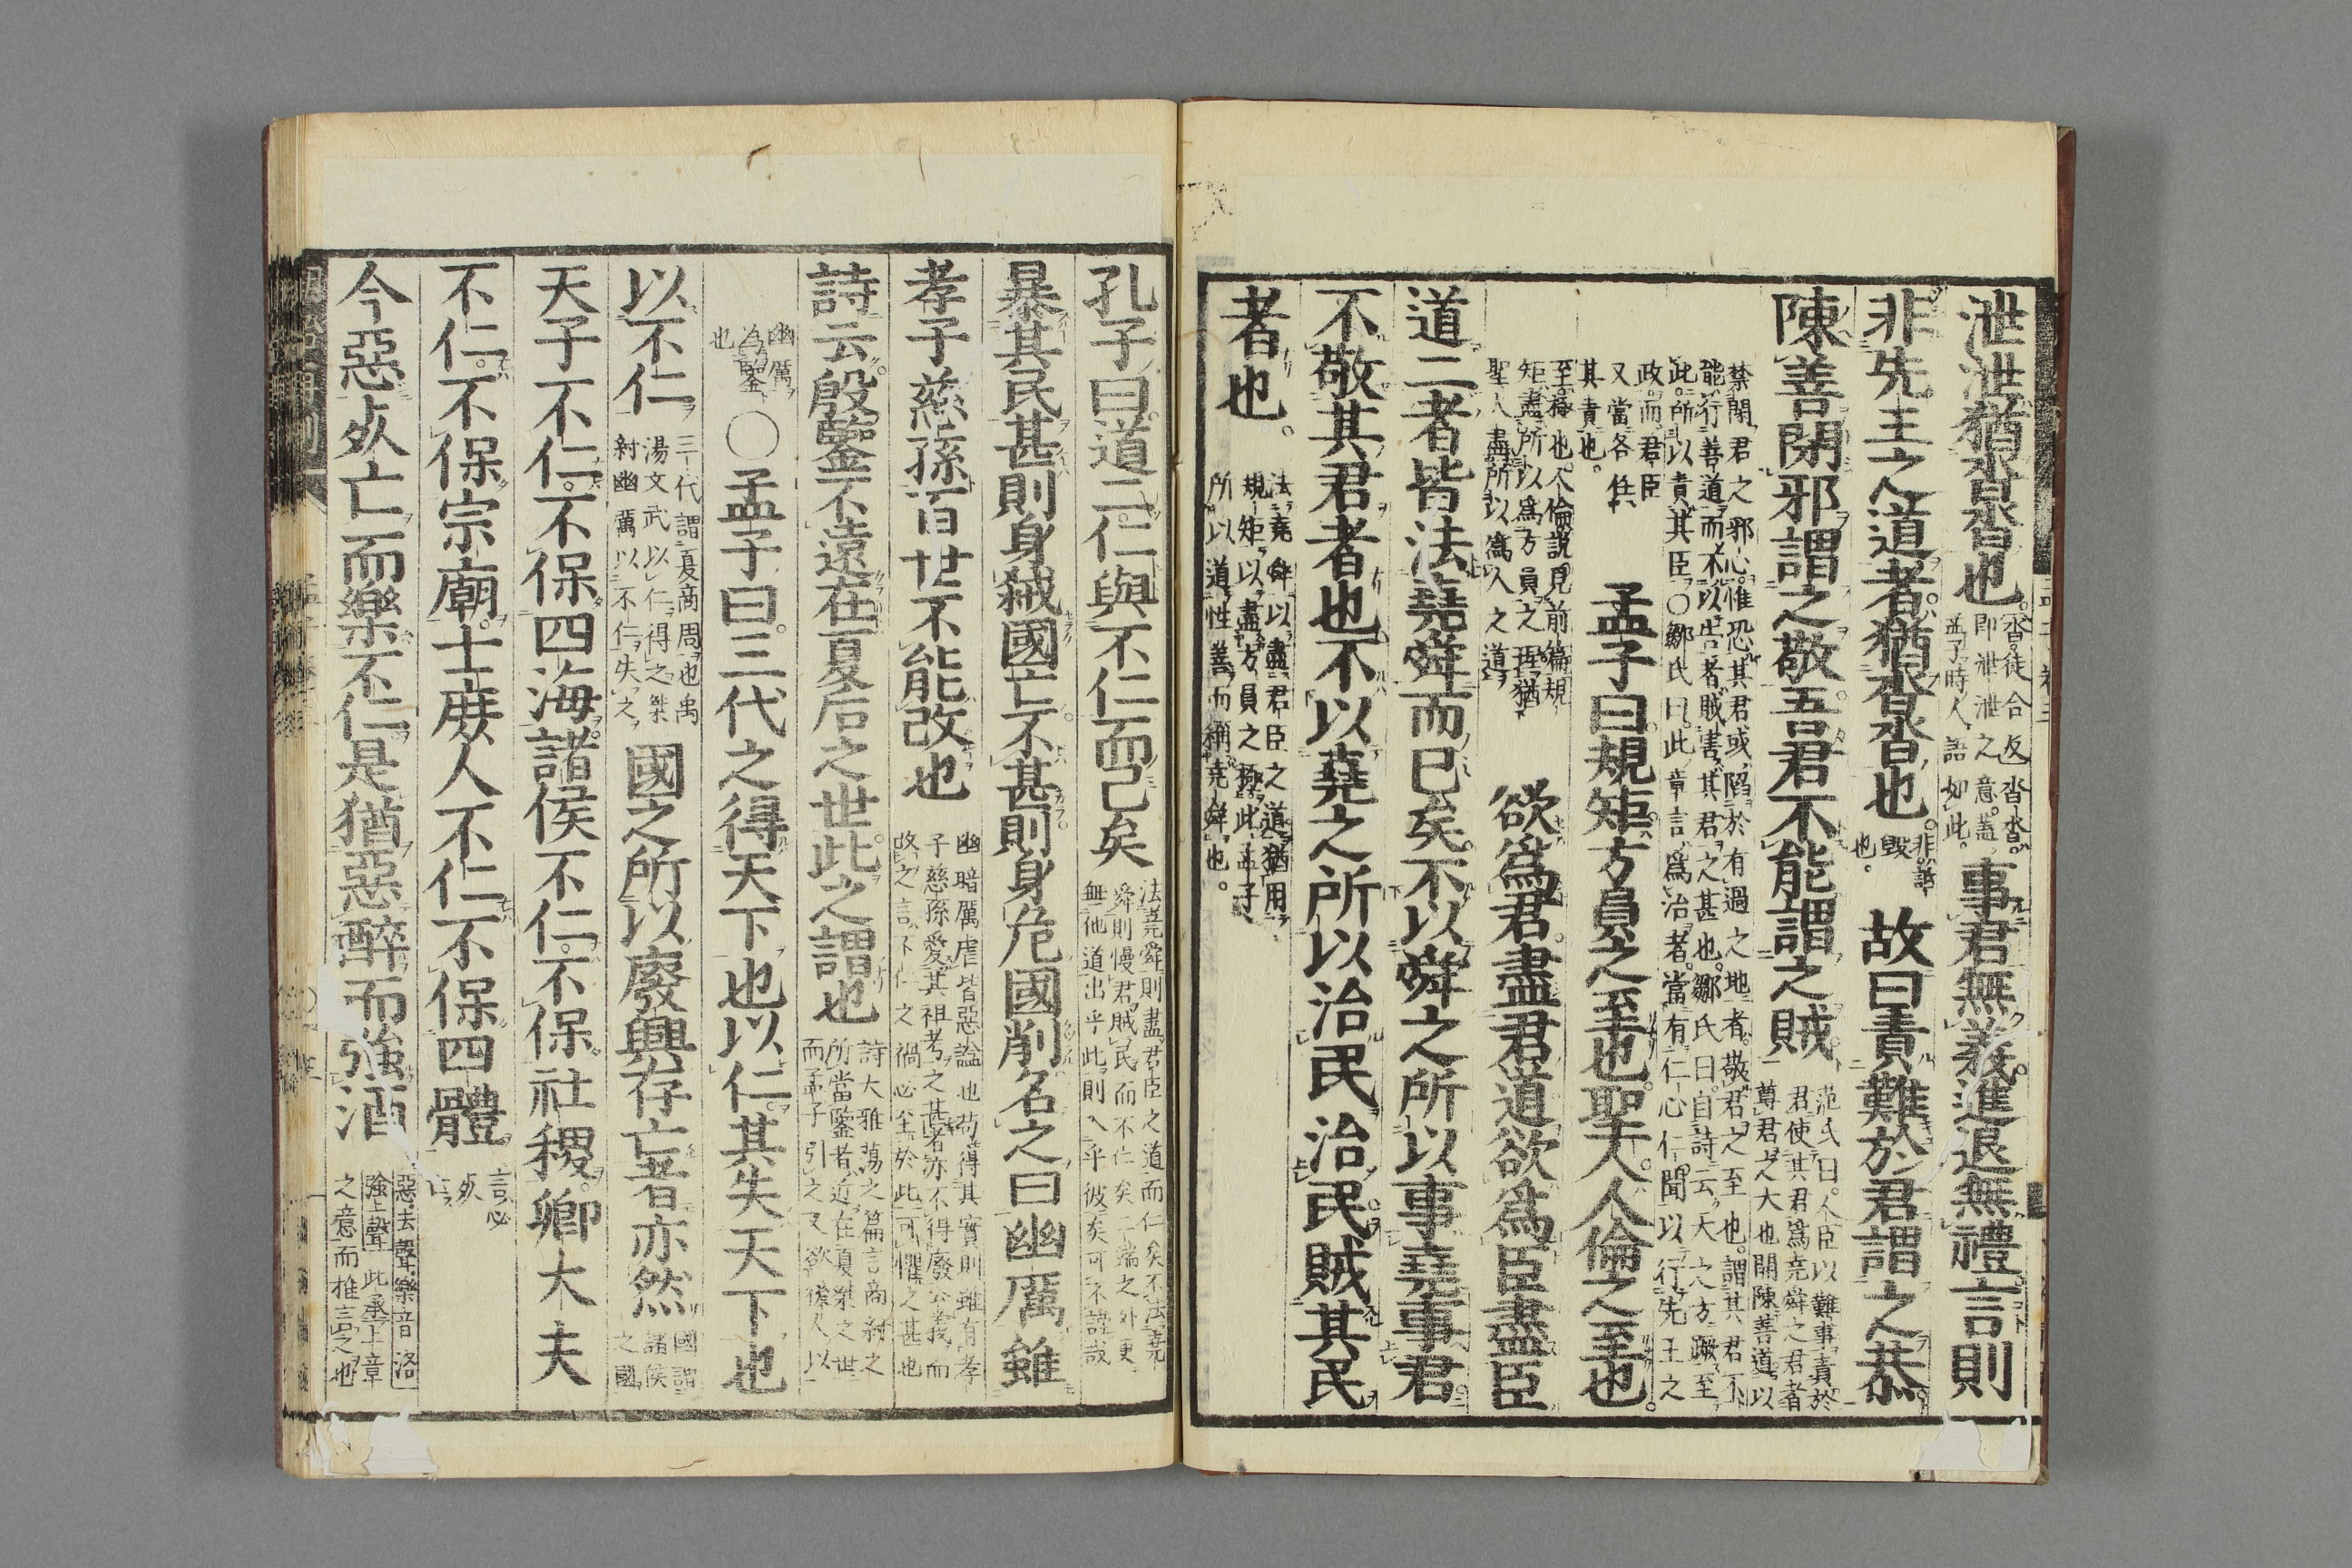 泄泄猶沓沓也。沓徒合反沓沓。即泄泄之意。蓋孟子時人語如此。事君無義。進退無禮。言則
非先王之道者。猶沓沓也。非詆毀也。故曰責難於君謂之恭。
陳善閉邪謂之敬。吾君不能謂之賊。范氏曰。人臣以難事責於君使其君爲堯舜之君者尊君之大也開陳善道以
禁閉君之邪心。惟恐其君或陷於有過之地者。敬君之至也。謂其君不能行善道而不以告者。賊害其君之甚也。鄒氏曰。自詩云天之方蹶。至
此。所以責其臣○鄒氏曰。此章言爲治者。當有仁心仁聞以行先王之政。而君臣
又當各任其責也。孟子曰。規矩。方員之至也。聖人。人倫之至也。
至。極也。人倫說見前篇規矩盡所以爲方員之理猶聖人盡所以爲人之道。欲爲君。盡君道。欲爲臣。盡臣
道。二者皆法堯舜而已矣。不以舜之所以事堯事君
不敬其君者也。不以堯之所以治民治民。賊其民
者也。法堯舜以盡君臣之道。猶用規矩以盡方員之極。此孟子所以道性善而稱堯舜也。
孔子曰。道二。仁與不仁而已矣法堯舜則盡君臣之道而仁矣不法堯舜則慢君賊民而不仁矣二端之外更無他道出乎此則入乎彼矣可不謹哉
暴其民甚則身弒國亡。不甚則身危國削。名之曰幽厲雖
孝子慈孫百世不能改也幽暗厲虐皆惡諡也苟得其實則雖有孝子慈孫愛其祖考之甚者亦不得廢公義而改之言不仁之禍必至於此可懼之甚也
詩云。殷鑒不遠。在夏后之世。此之謂也詩大雅蕩之篇言商紂之所當鑒者近在夏桀之世而孟子引之又欲後人以
幽厲爲鑒也○孟子曰。三代之得天下也以仁。其失天下也
以不仁三代謂夏商周也禹湯文武以仁得之桀紂幽厲以不仁失之。國之所以廢興存亡者亦然國謂諸侯之國
天子不仁。不保四海。諸侯不仁。不保社稷。卿大夫
不仁。不保宗廟。士庶人不仁。不保四體言必死亡
今惡死亡而樂不仁。是猶惡醉而強酒惡去聲樂音洛強上聲此承上章之意而推言之也